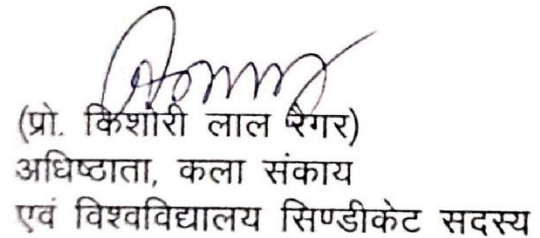 (प्रो. किशोरी लाल रैगर)
अधिष्ठाता, कला संकाय
एवं विश्वविद्यालय सिण्डीकेट सदस्य